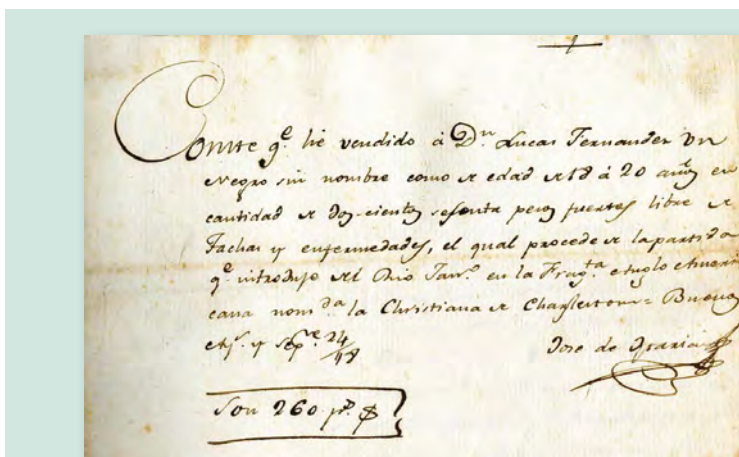 Conste q.e he vendido á D.n Lucas Fernandez Vn
Negro sin nombre como de edad de 18 á 20 años en
cantidad de Dos-cientos sesenta pesos fuertes libre de
Tachas y enfermedades, el qual procede de la partida
q.e introdujo del Rio Jan.o en la Frag.ta Anglo Ameri
cana nom.da la Christiana de Charlestown = Buenos
Ay.s y Sep.re 24
Jose de
Son 260 p.s